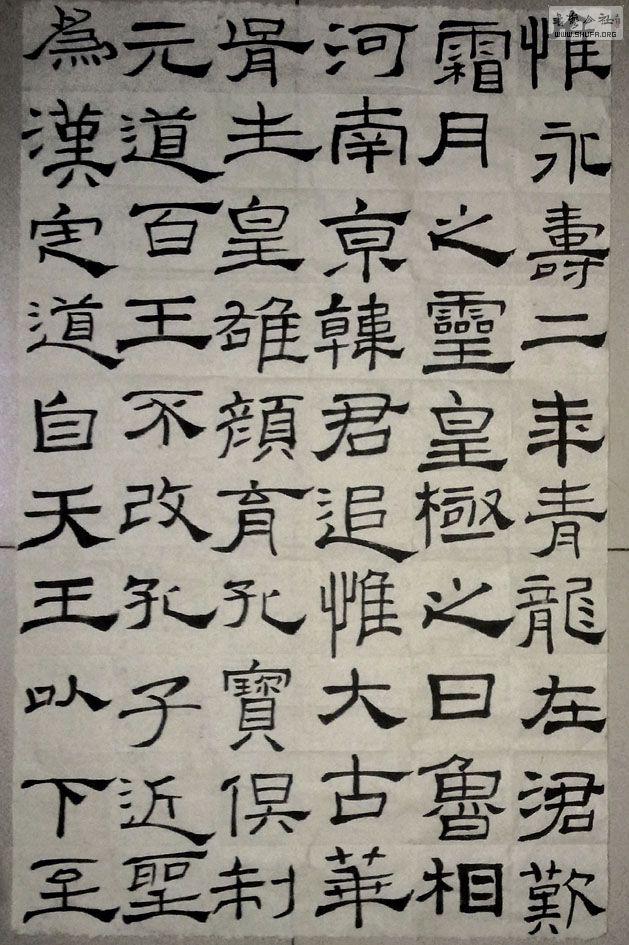 惟永壽二年青龍在涒歎
霜月之靈皇極之日魯相
河南京韓君追惟大古華
胥生皇雄顏育孔寶俱制
元道百王不改孔子近聖
為漢定道自天王以下至
公社
WWW.SHUFA.ORG